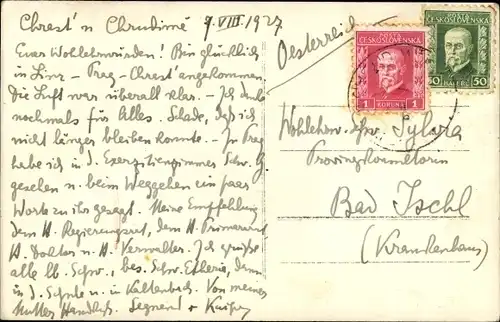 Chrest' n Chrudimě 9. VIII. 1927
Euer Wohlehrwürden! Bin glücklich
in Linz – Prag – Chrest' angekommen.
Die Luft war überall klar. – Ich danke
nochmals für Alles. Schade, daß ich
nicht länger bleiben konnte. – In Prag
habe ich in d. Exerzitienzimmer Schw.
gesehen u. beim Weggehen ein paar
Worte zu ihr gesagt. Meine Empfehlung
dem H. Regierungsrat, dem H. Primararzt
H. Doktor u. H. Verwalter. Ich grüße
alle lb. Schw., bes. Schw. dann
in d. Schule u. in Kaltenbach. Von meiner
Mutter Handkuß. Segnend +
Oesterreich
POŠTA
ČESKOSLOVENSKÁ
1 KORUNA 1
POŠTA
ČESKOSLOVENSKÁ
50 HALÉŘŮ 50
Wohlehrw. Schw.
Bad Ischl
(Krankenhaus)